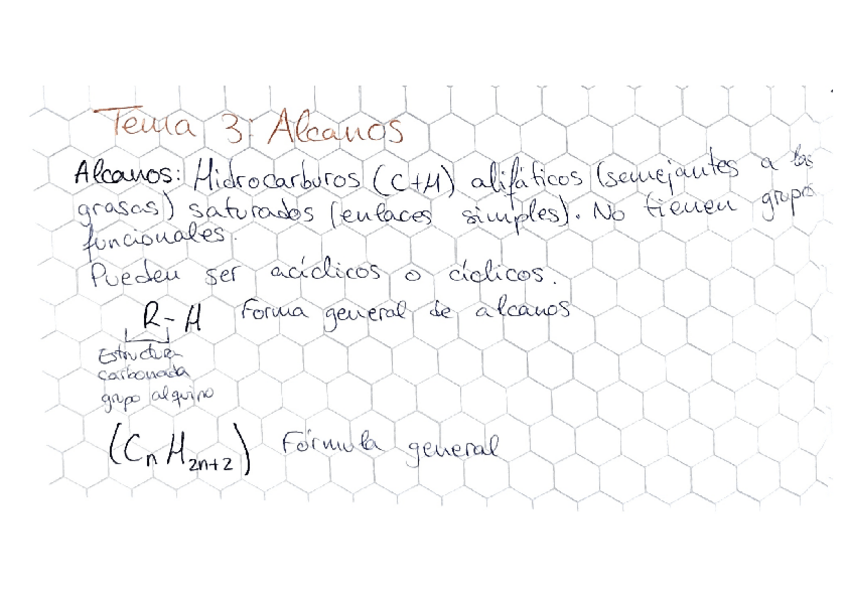 Tema 3: Alcanos
Alcanos: Hidrocarburos (C+H) alifáticos (semejantes a las
grasas) saturados (enlaces simples). No tienen grupos
funcionales.
Pueden ser acíclicos o cíclicos.
R-H Forma general de alcanos
Estructura
carbonada
grupo alquino
(CnH2n+2) Fórmula general